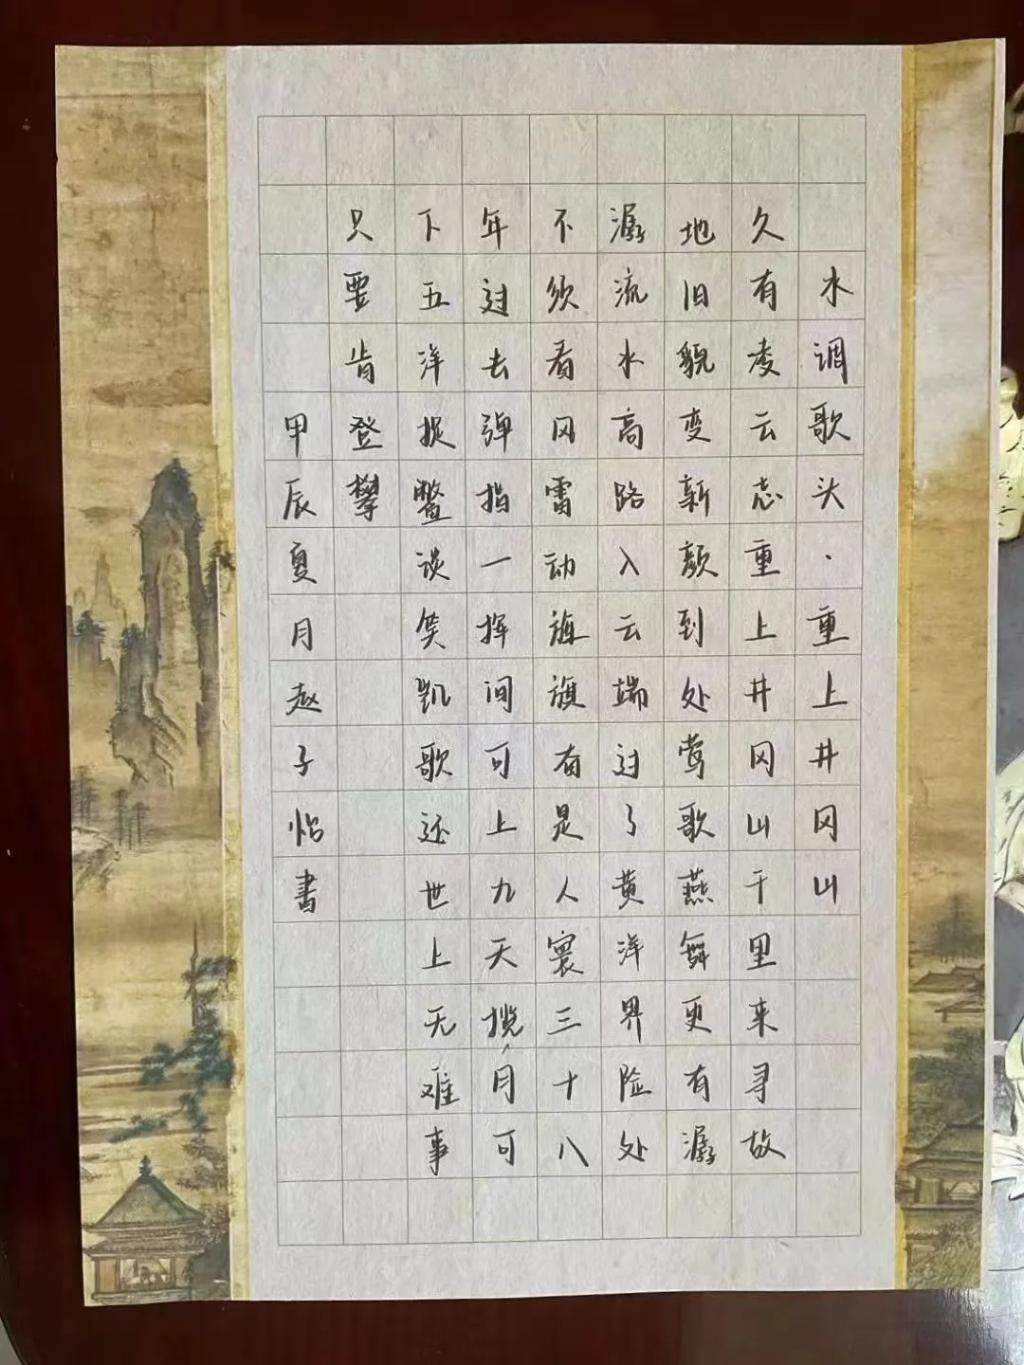 水调歌头·重上井冈山
久有凌云志重上井冈山千里来寻故
地旧貌变新颜到处莺歌燕舞更有潺
潺流水高路入云端过了黄洋界险处
不须看风雷动旌旗奋是人寰三十八
年过去弹指一挥间可上九天揽月可
下五洋捉鳖谈笑凯歌还世上无难事
只要肯登攀
甲辰夏月赵子怡書